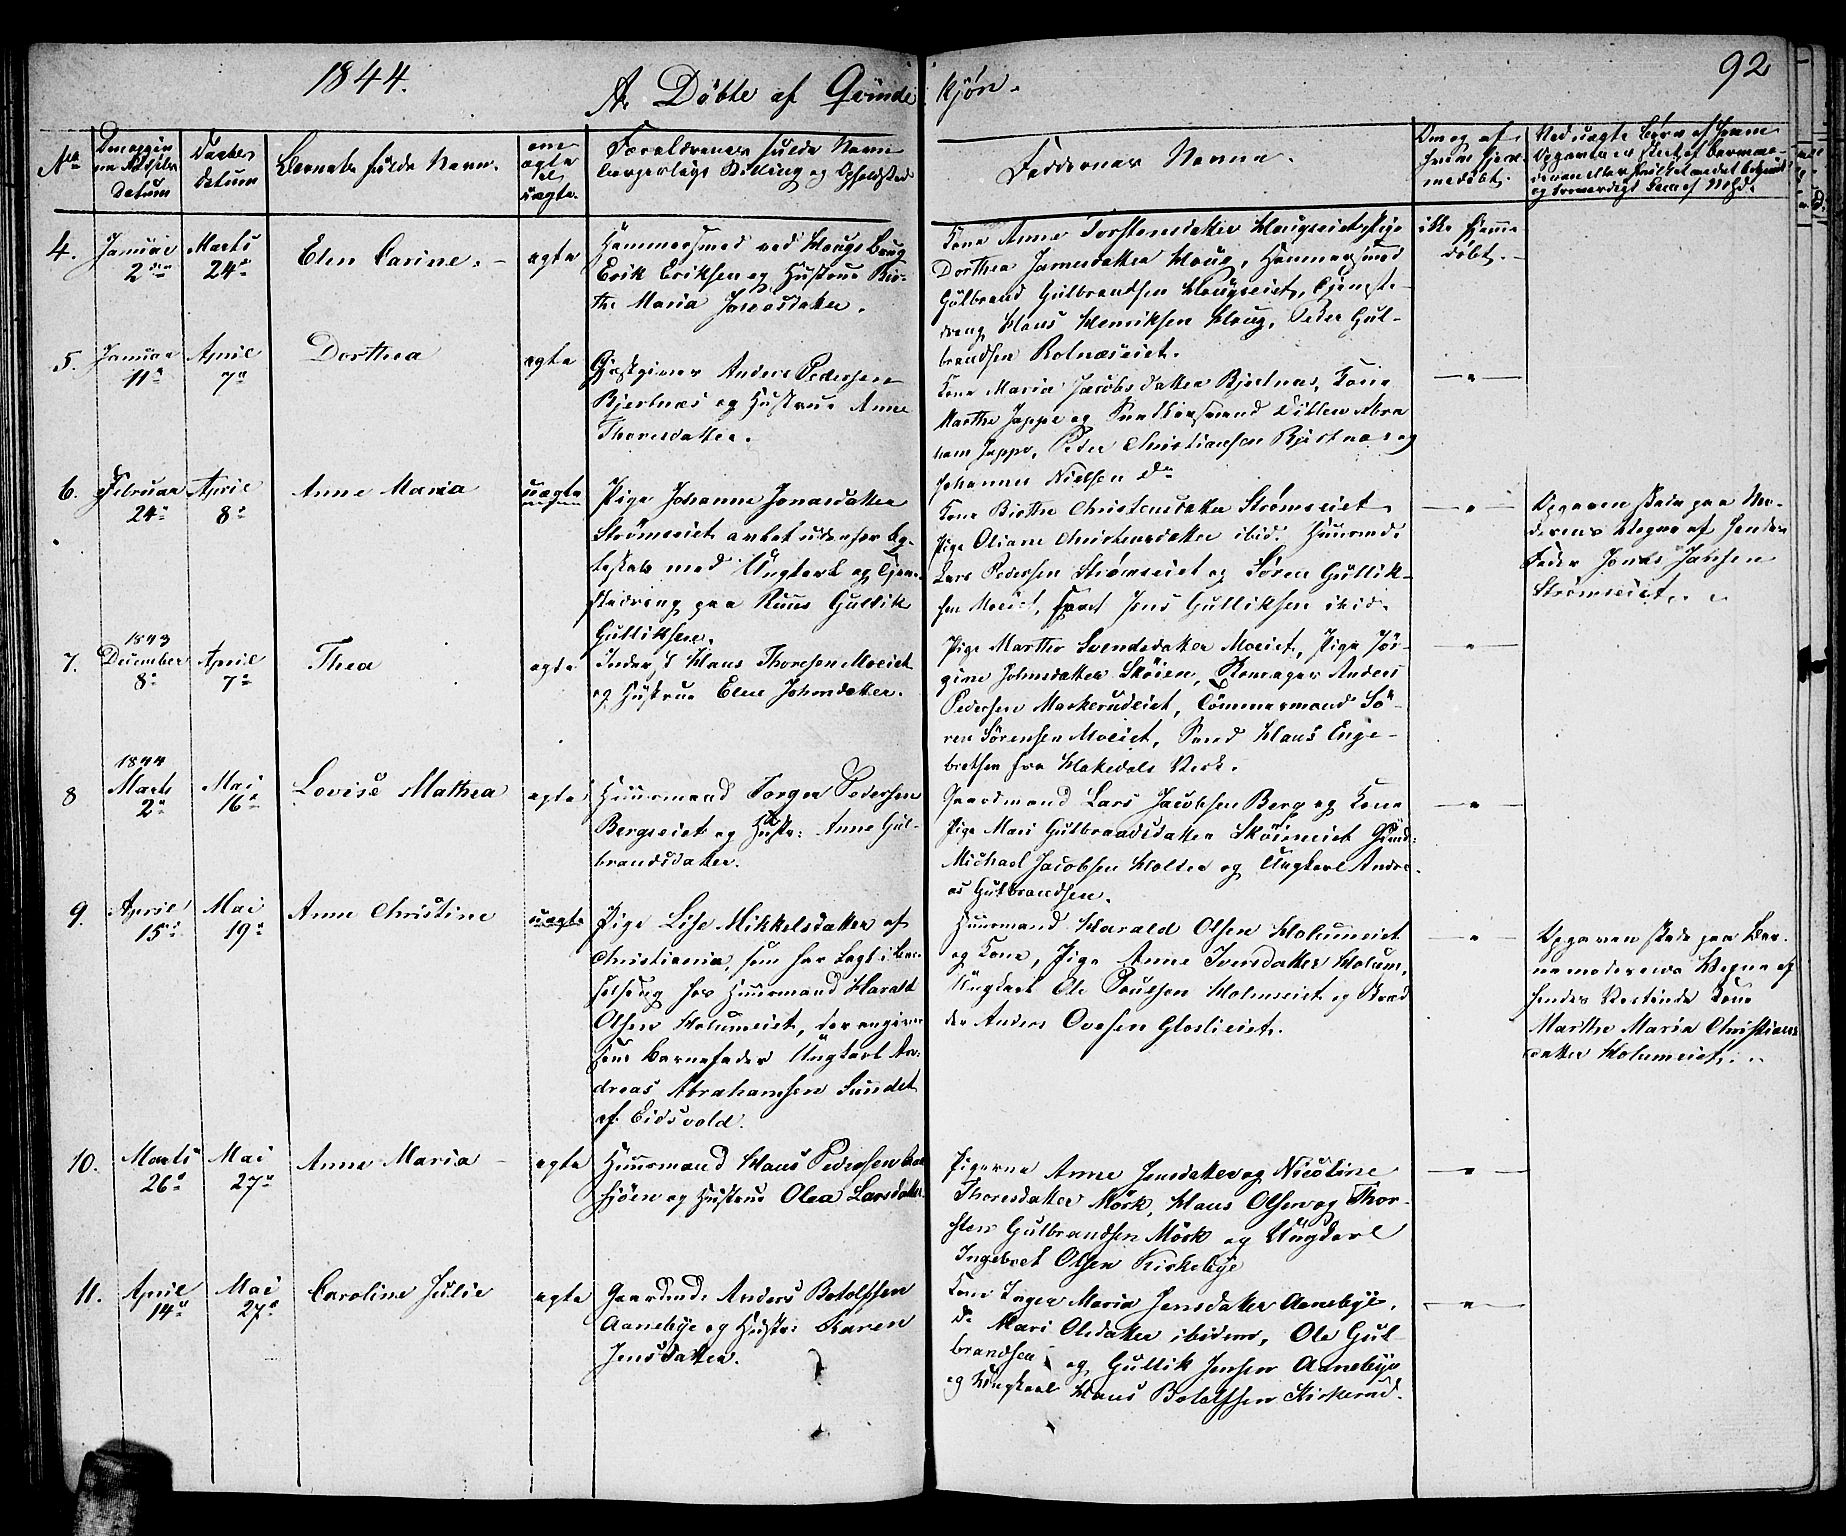 1844.
92
A. Döbte af Qvinde kjøn.
No
Datum
Daabs
Datum
Barnets fulde Navn.
om
ægte
el
uægte.
Forældrenes fulde Navn
borgerlige Stilling og Opholdsted
Faddernes Navne.
4.
Januar
2den
Marts
24de
Elen Carine.
ægte
Hammersmed ved Hougs Brug
Erik Eriksen og Hustrue Bir-
the Maria Jonasdatter.
Kone Anne Torstensdatter Hougseiet, Pige
Dorthea Jamesdatter Houg, Hammersmed
Gulbrand Gulbrandsen Hougseiet, Tjeneste-
dreng Hans Henriksen Houg, Peder Gul-
brandsen Rotnæseiet.
ikke hjemme
döbt.
5.
Januar
11te
April
7de
Dorthea
ægte
Gjæstgiver Anders Pedersen
Bjertnæs og Hustrue Anne
Thoresdatter.
Kone Maria Jacobsdatter Bjertnæs, Kone
Marthe Jappe og
Jappe, Peder Christiansen Bjertnæs og
Johannes Nielsen Do
6.
Februar
24de
April
8de
Anne Maria
uægte
Pige Johanne Jonasdatter
Strømseiet avlet udenfor Eg-
teskab med Ungkarl og Tjene-
stedreng paa Ruus Gullik
Gulliksen.
Kone Birthe Christensdatter Strømseiet,
Pige Oliane Christensdatter ibid. Huusmd.
Lars Pedersen Strømseiet og Søren Gullik-
sen Moeiet, Jens Gulliksen ibid.
Opgaven skede paa Mo-
derens Vegne af hendes
Fader Jonas Jansen
Strømseiet.
7.
1843
December
8de
April
7de
Thea
ægte
Inders. Hans Thoresen Moeiet
og Hustrue Elen Johnsdatter.
Pige Marthe Svendsdatter Moeiet, Pige Jør-
gine Johnsdatter Skøien, Skomager Anders
Pedersen Markerudeiet, Tömmermand Sö-
ren Sørensen Moeiet, Smed Hans Enge-
bretsen fra Hakedals Verk.
8
1844
Marts
2de
Mai
16de
Lovise Mathea
ægte
Huusmand Torger Pedersen
Bergseiet og Hustr: Anne Gul-
brandsdatter.
Gaardmand Lars Jacobsen Berg og Kone
Pige Mari Gulbrandsdatter Skøieneiet
Michael Jacobsen Holter og Ungkarl Andre-
as Gulbrandsen.
9.
April
15de
Mai
19de
Anne Christine
uægte
Pige Lise Mikkelsdatter af
Christiania, som har lagt i Bar-
selseng hos Huusmand Harald
Olsen Holumeiet, der angiver
som Barnefader Ungkarl An-
dreas Abrahamsen Sundet
af Eidsvold.
Huusmand Harald Olsen Holumeiet
og Kone, Pige Anne Iversdatter Holum,
Ungkarl Ole Poulsen Holmseiet og
Anders Ovesen Gloslieiet.
Opgaven skede paa Bar-
nemoderens Vegne af
hendes Vertinde Kone
Marthe Maria Christians
datter Holumeiet.
10.
Marts
26de
Mai
27de
Anne Maria
ægte
Huusmand Hans Pedersen
og Hustrue Olea Larsdatter
Pigerne Anne Jensdatter og Nicoline
Thoresdatter Mörk, Hans Olsen og Thor-
sten Gulbrandsen Mörk og Ungkarl
Ingebret Olsen Kirkebye
11.
April
14de
Mai
27de
Caroline Julie
ægte
Gaardmd: Anders Botolfsen
Aanebye og Hustr: Karen
Jensdatter.
Kone Inger Maria Jensdatter Aanebye,
Do Mari Olsdatter ibidem, Ole Gul-
brandsen og Gullik Jensen Aanebye
og Ungkarl Hans Botolfsen Kirkerud.